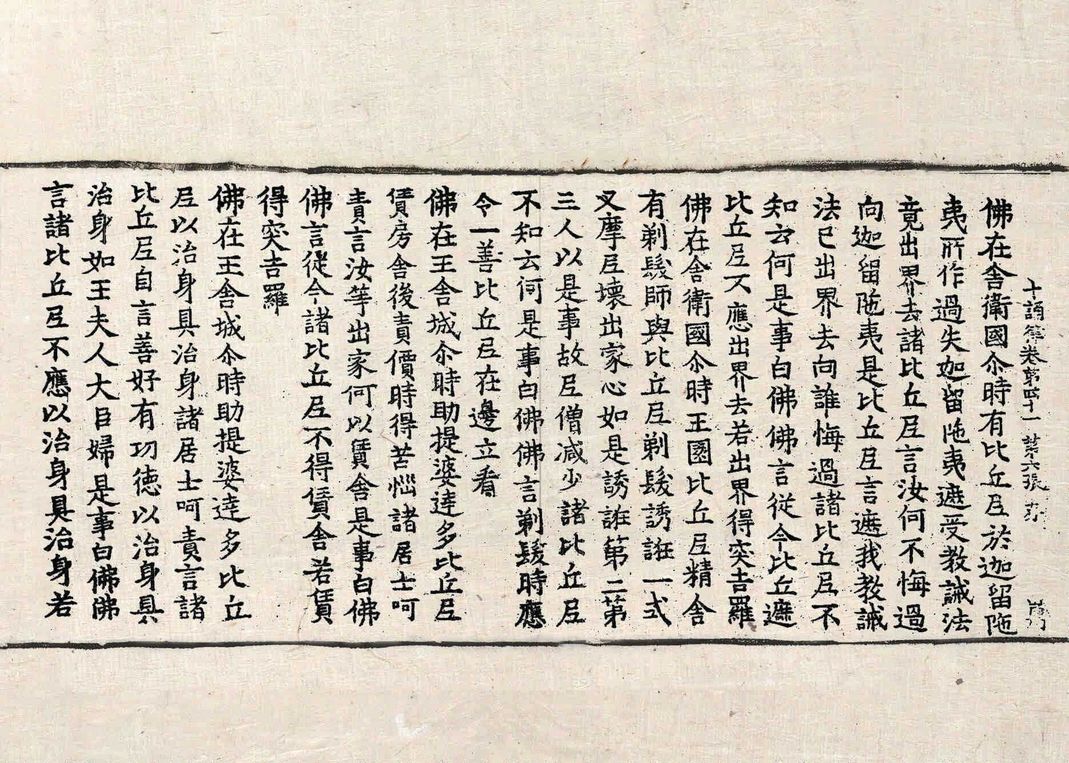 十誦律卷第四十一 第六張
佛在舍衛國尒時有比丘尼於迦留陁
夷所作過失迦留陁夷遮受教誡法
竟出界去諸比丘尼言汝何不悔過
向迦留陁夷是比丘尼言遮我教誡
法已出界去向誰悔過諸比丘尼不
知云何是事白佛佛言從今比丘遮
比丘尼不應出界去若出界得突吉羅
佛在舍衛國尒時王園比丘尼精舍
有剃髮師與比丘尼剃髮誘誑一式
叉摩尼壞出家心如是誘誑第二第
三人以是事故尼僧减少諸比丘尼
不知云何是事白佛佛言剃髮時應
令一善比丘尼在邊立看
佛在王舍城尒時助提婆達多比丘尼
賃房舍後責價時得苦惱諸居士呵
責言汝等出家何以賃舍是事白佛
佛言從今諸比丘尼不得賃舍若賃
得突吉羅
佛在王舍城尒時助提婆達多比丘
尼以治身具治身諸居士呵責言諸
比丘尼自言善好有功德以治身具
治身如王夫人大臣婦是事白佛佛
言諸比丘尼不應以治身具治身若